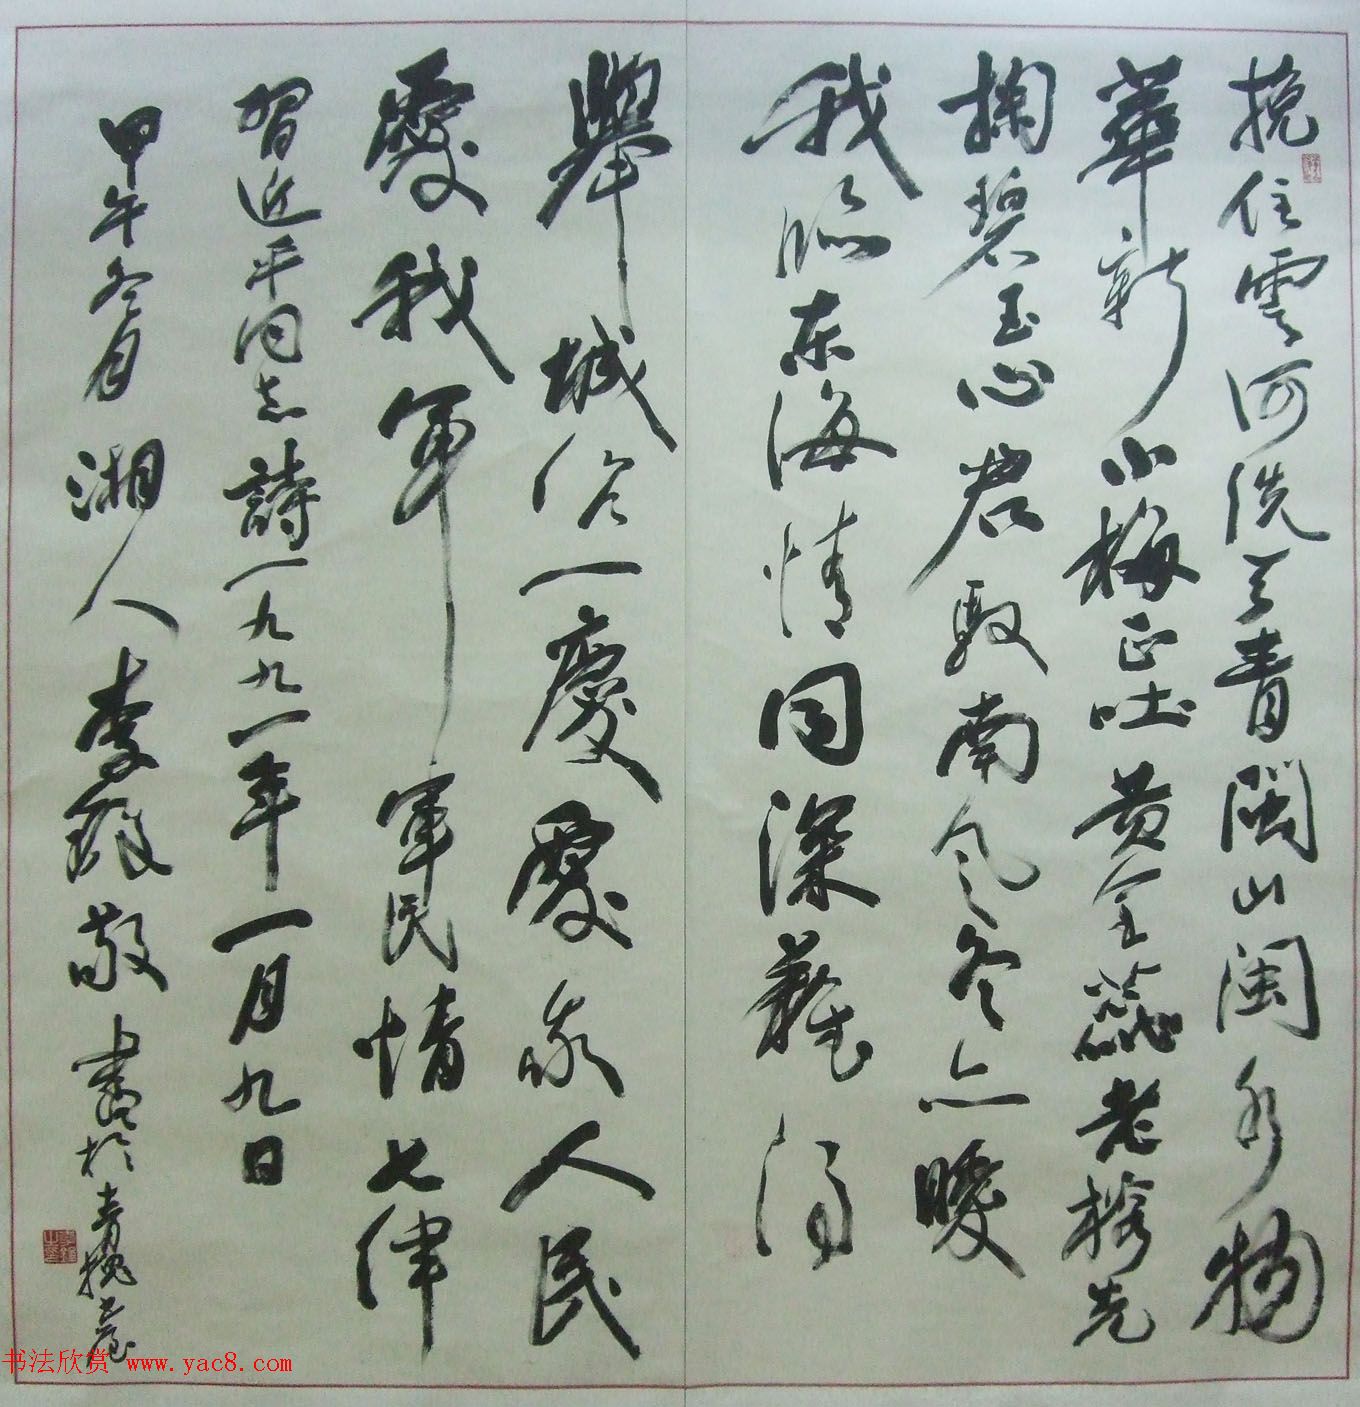 挽住雲河洗天青闽山闽水物
華新小梅正吐黄金蕊老榕先
掬碧玉心君驭南风冬亦暖
我临东海情同深難得
舉城作一慶愛我人民
愛我軍 軍民情七律
習近平同志詩一九九一年一月九日
甲午冬月湘人李敬書於青
书法欣赏 www.yac8.com